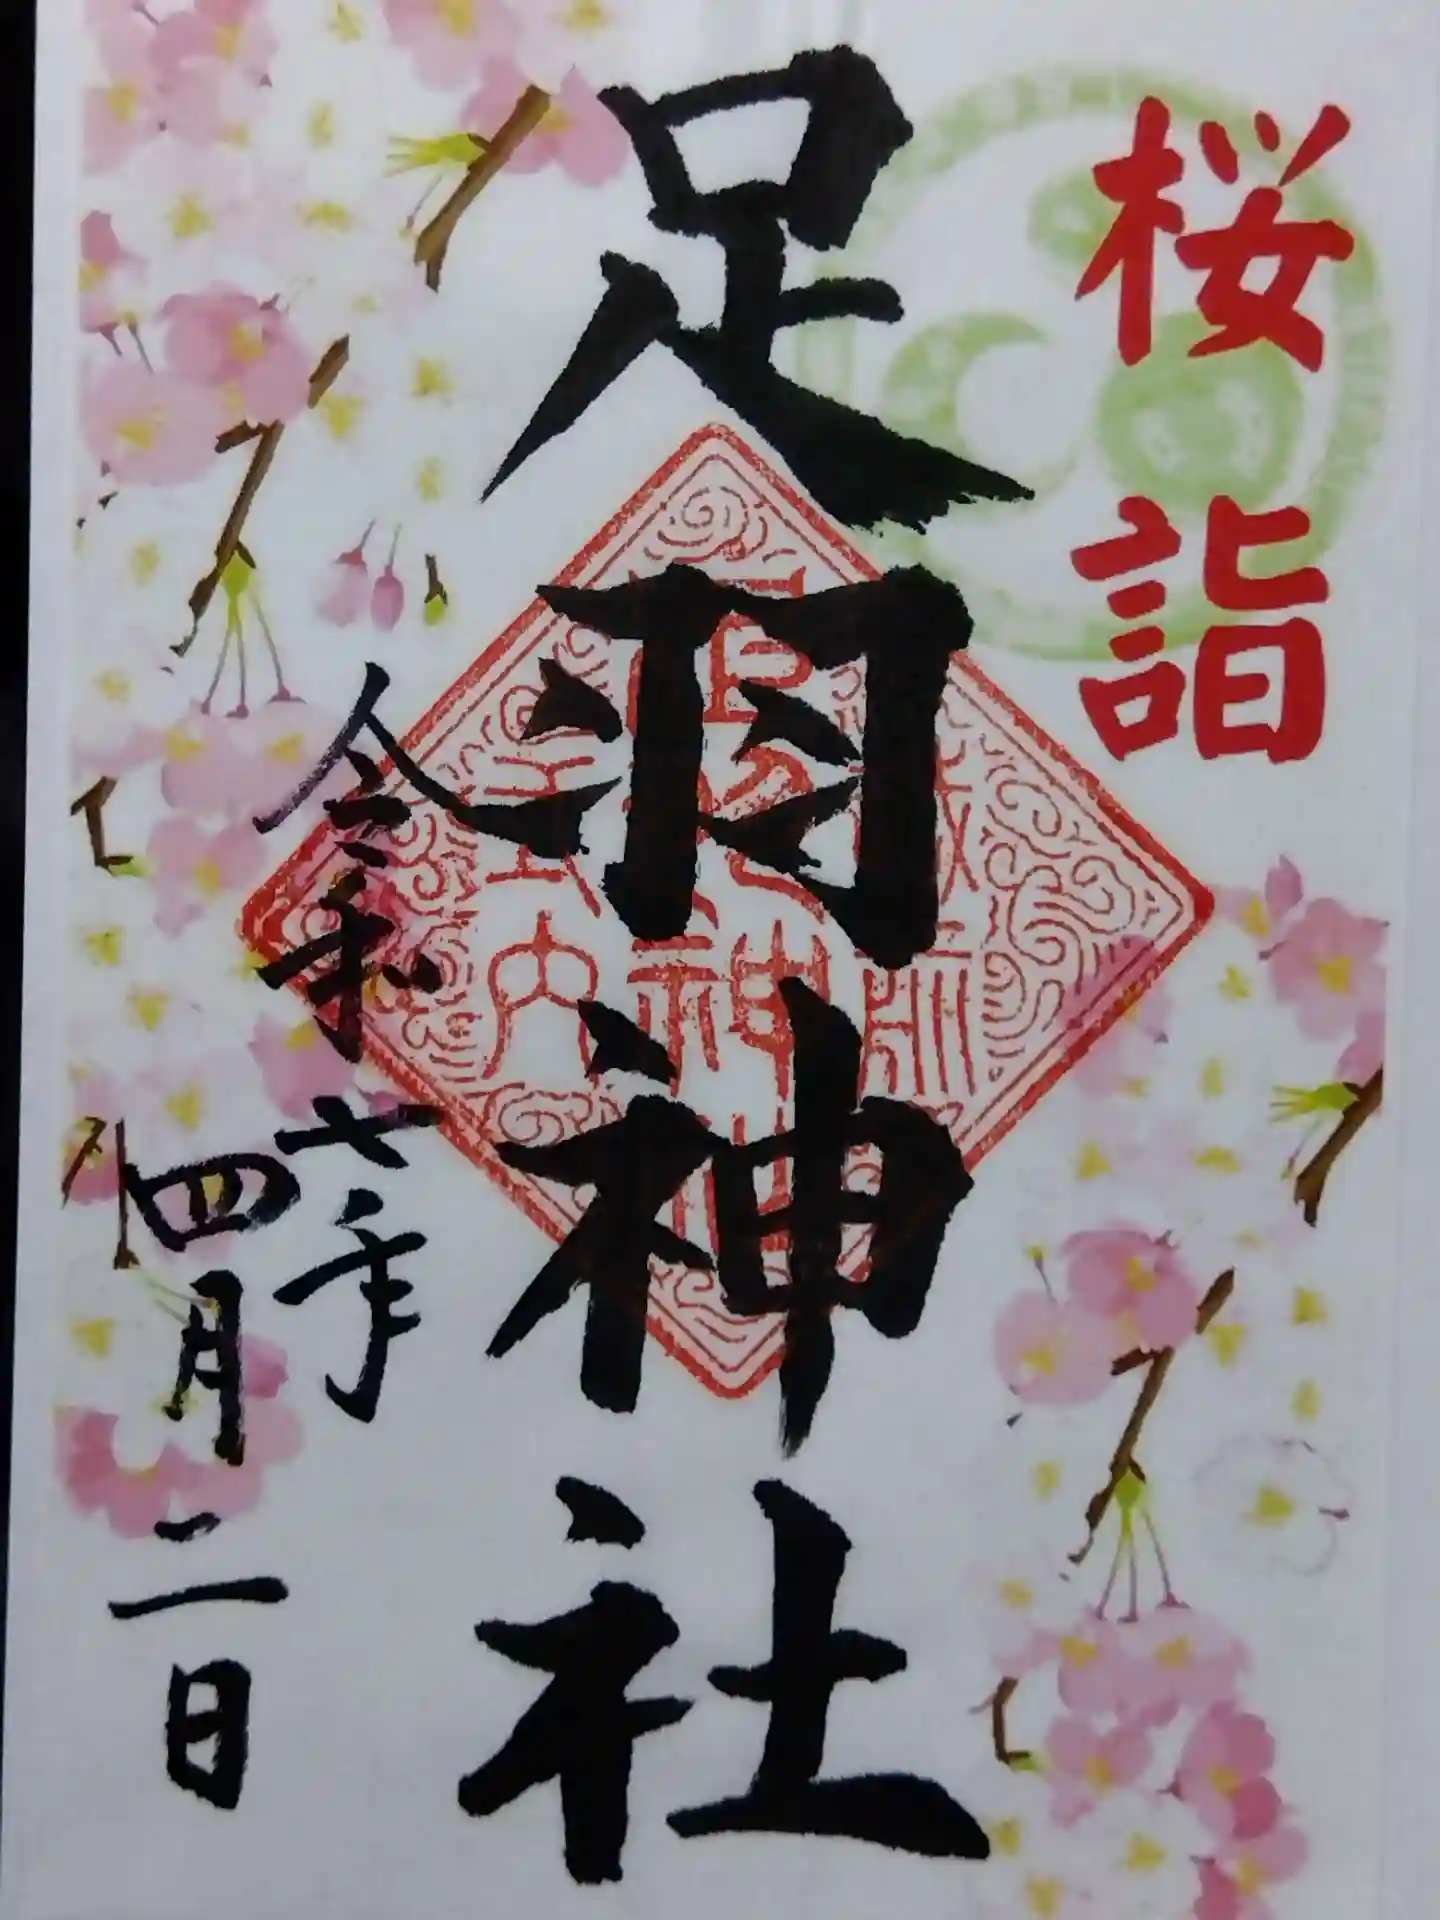 桜詣
足羽神社
令和七年
四月二日